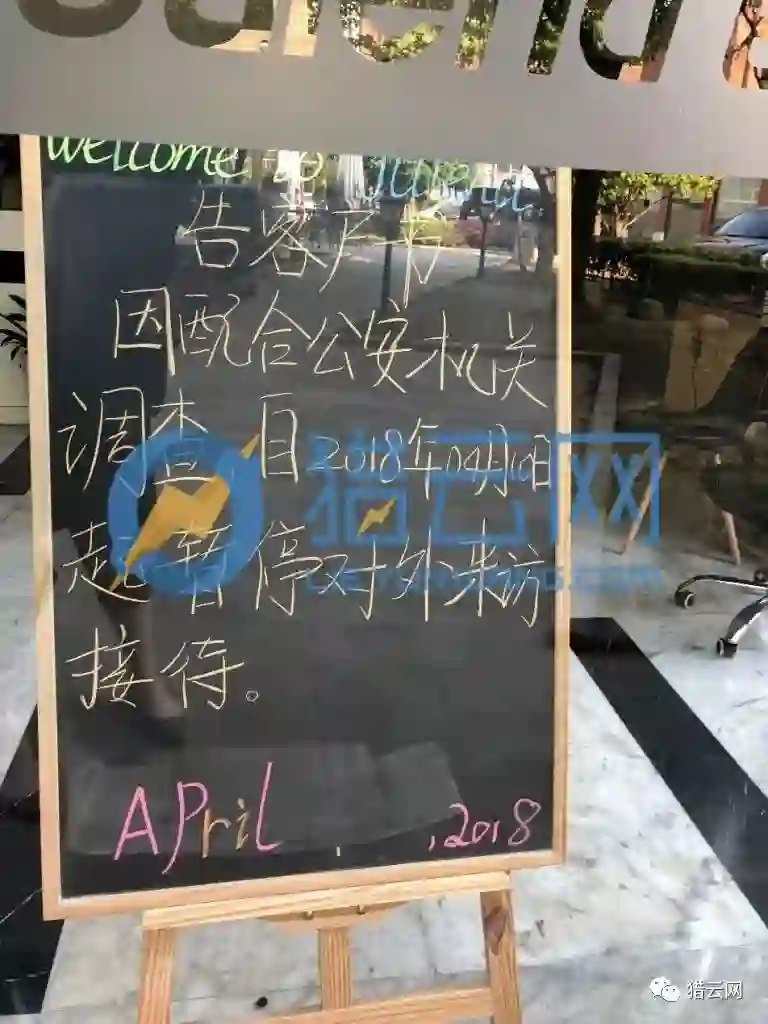 welcome to
告客户书
因配合公安机关
调查,自2018年04月10日
起暂停对外来访
接待。
APril , 2018
猎云网
猎云网